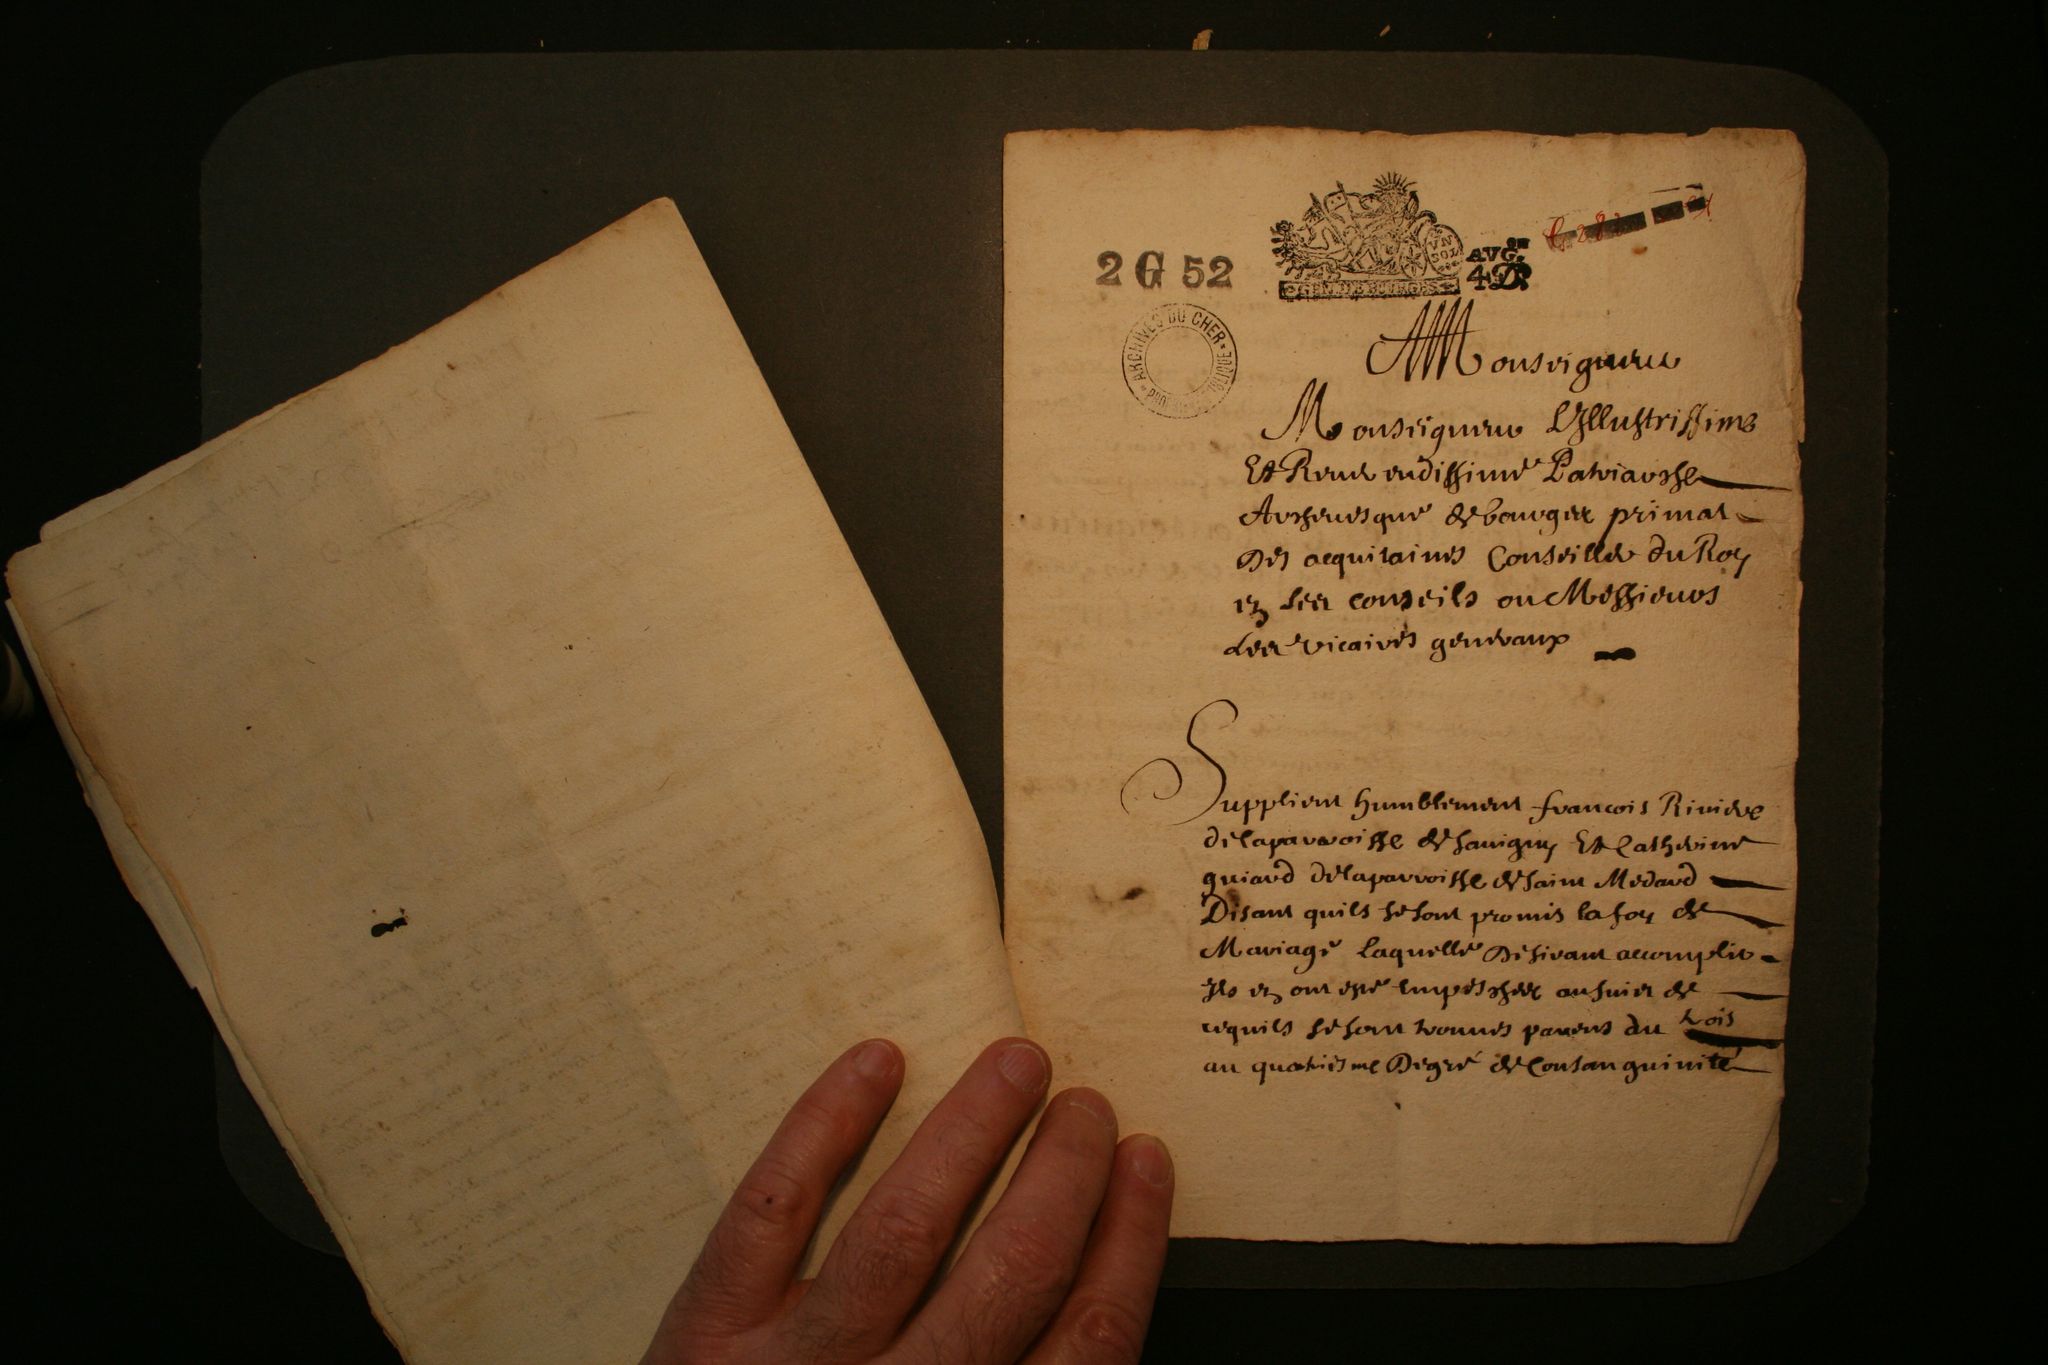 2 G 52
VN SOL
AVG.on
4 D.
GEN. DE BOURGES
ARCHIVES DU CHER
A Monseigneur
Monseigneur LJllustrissime
Et Reuerendissime Patriarche
Archeuesque de bourges primat
Des acquitaines Conseiller du Roy
en ses conseils ou Messieurs
les vicaires generaux
Supplient humblement francois Riuiere
de la parroisse de sauigny Et Catherine
guiard de la parroisse de saint Medard
Disant quils se sont promis la foy de
Mariage laquelle Desirant accomplir
Jls en ont esté empeschez au suiet de
ce quils se sont trouues parens du trois
au quatriesme Degré de Consanguinité